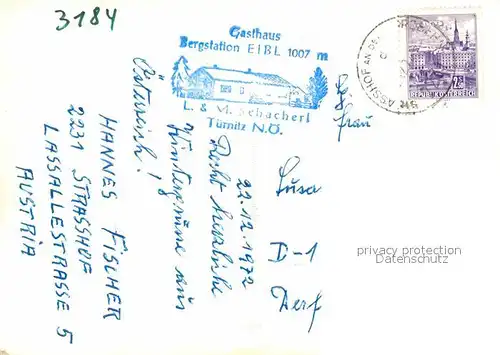 3184
Gasthaus
Bergstation EIBL 1007 m
L. & M. Schacherl
Türnitz N.Ö.
22.12.1972
Recht herzliche
Wintergrüsse aus
Österreich!
HANNES FISCHER
2231 STRASSHOF
LASSALLESTRASSE 5
AUSTRIA
Frau
Susa
D-1
Derf
2.50
REPUBLIK ÖSTERREICH
ASSHOF AN DER
privacy protection
Datenschutz